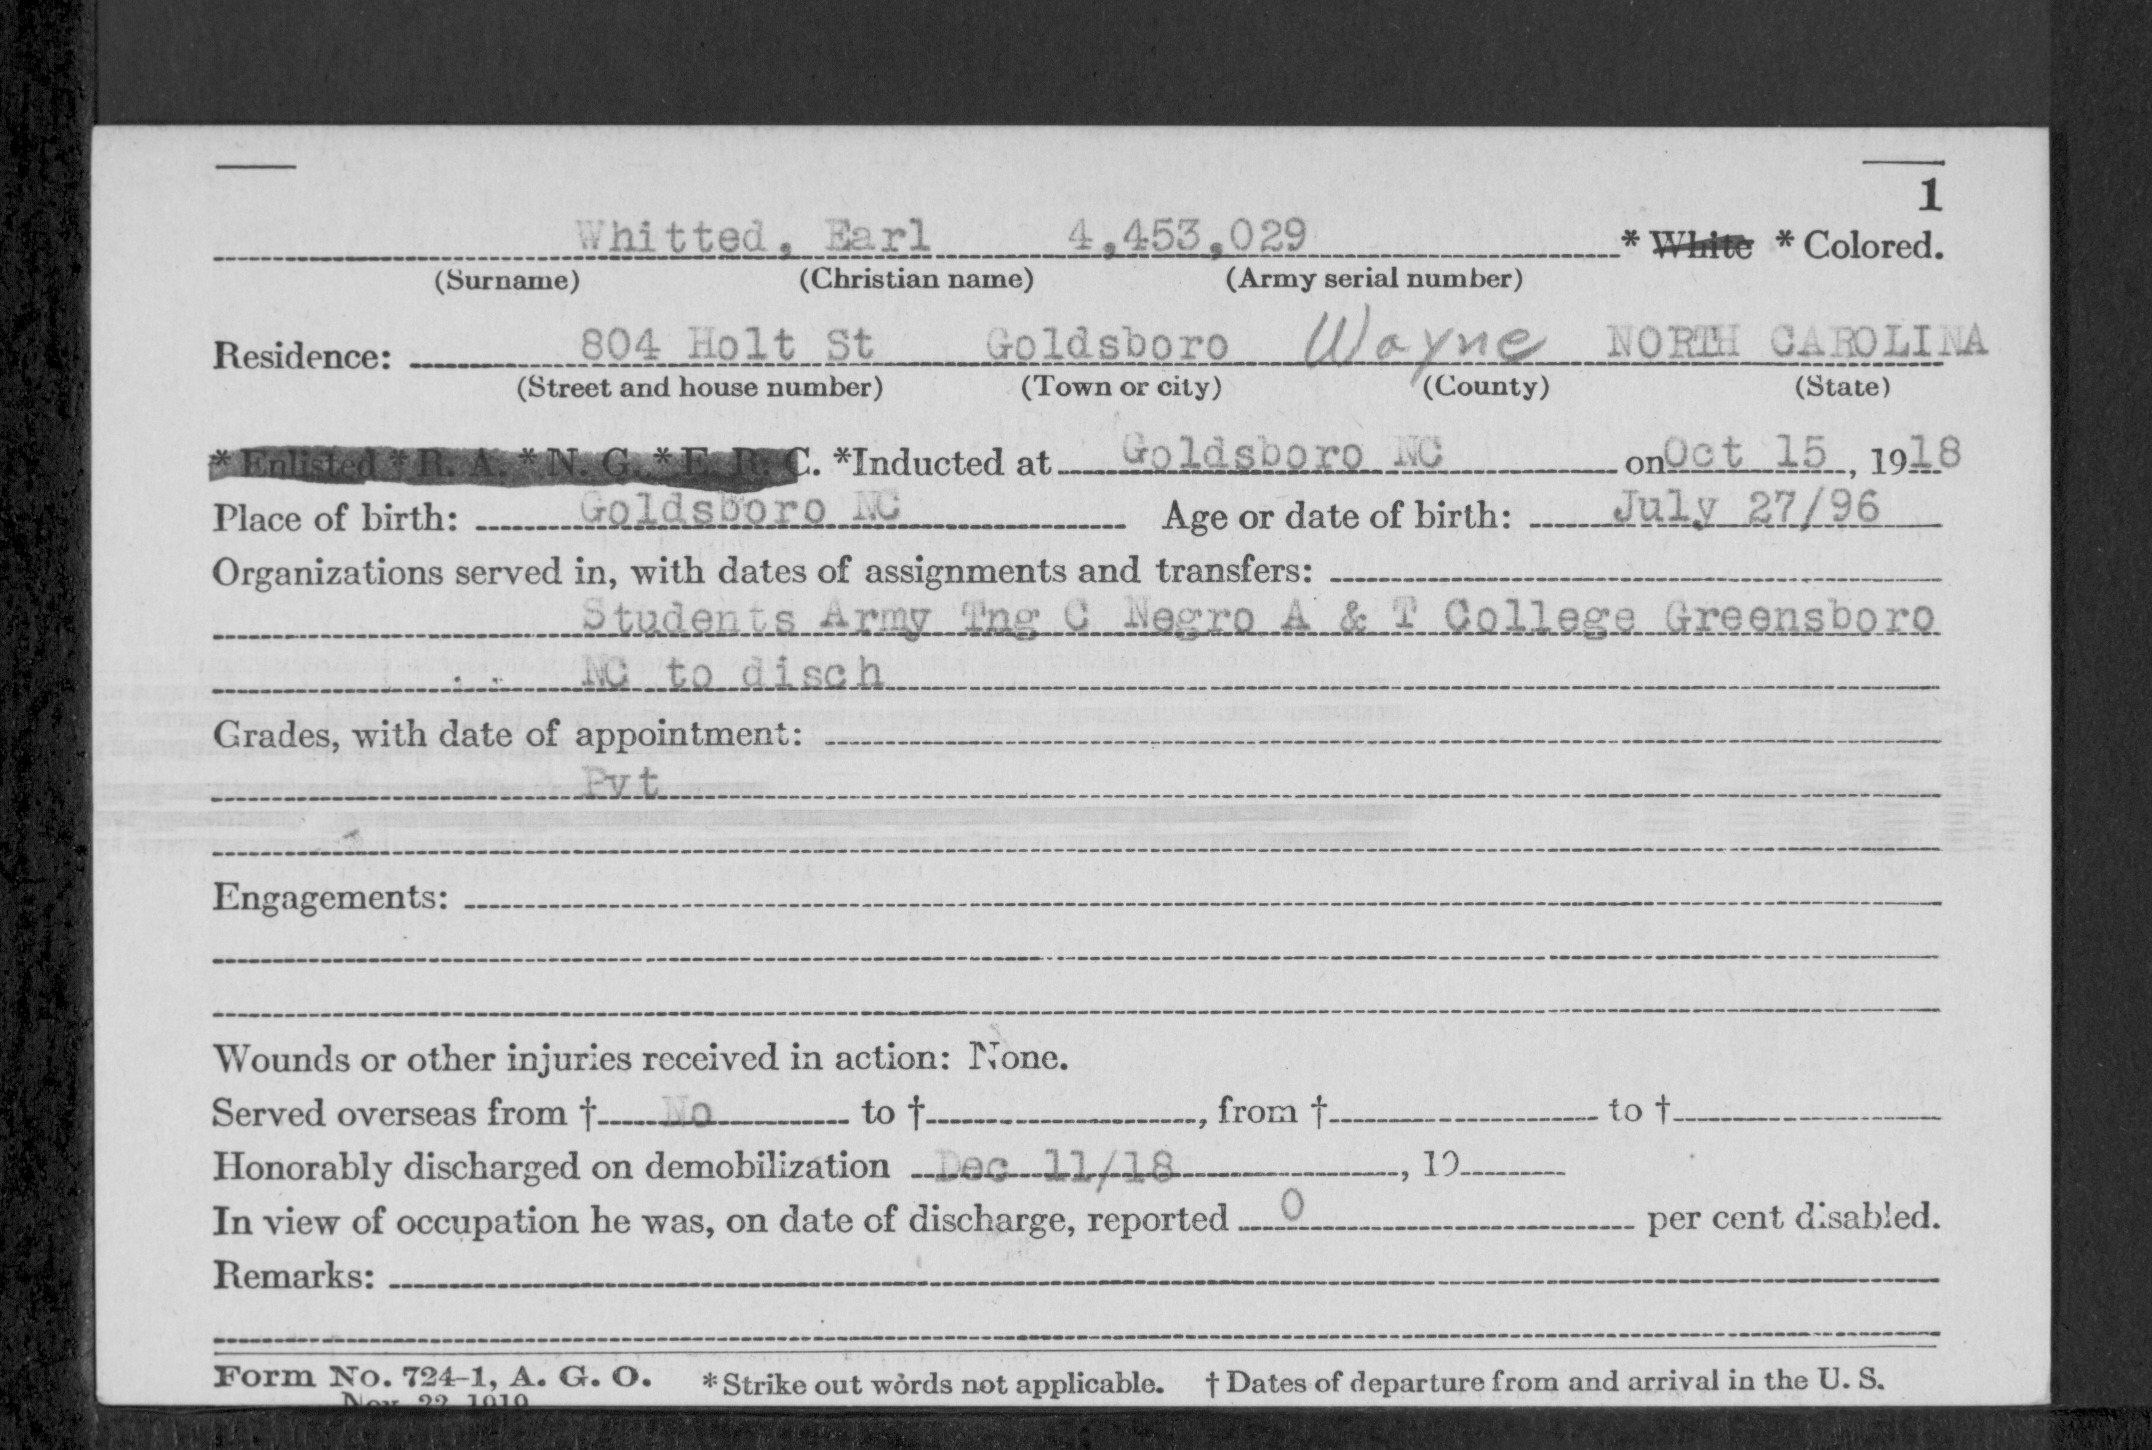 1
Whitted, Earl 4,453,029 * White * Colored.
(Surname) (Christian name) (Army serial number)
Residence: 804 Holt St Goldsboro Wayne NORTH CAROLINA
(Street and house number) (Town or city) (County) (State)
* Enlisted * R. A. * N. G. * E. R. C. *Inducted at Goldsboro NC on Oct 15, 1918
Place of birth: Goldsboro NC Age or date of birth: July 27/96
Organizations served in, with dates of assignments and transfers:
Students Army Tng C Negro A & T College Greensboro
NC to disch
Grades, with date of appointment:
Pvt
Engagements:
Wounds or other injuries received in action: None.
Served overseas from † No to †, from † to †
Honorably discharged on demobilization Dec 11/18, 19
In view of occupation he was, on date of discharge, reported 0 per cent disabled.
Remarks:
Form No. 724-1, A. G. O. * Strike out words not applicable. † Dates of departure from and arrival in the U. S.
Nov. 22, 1919